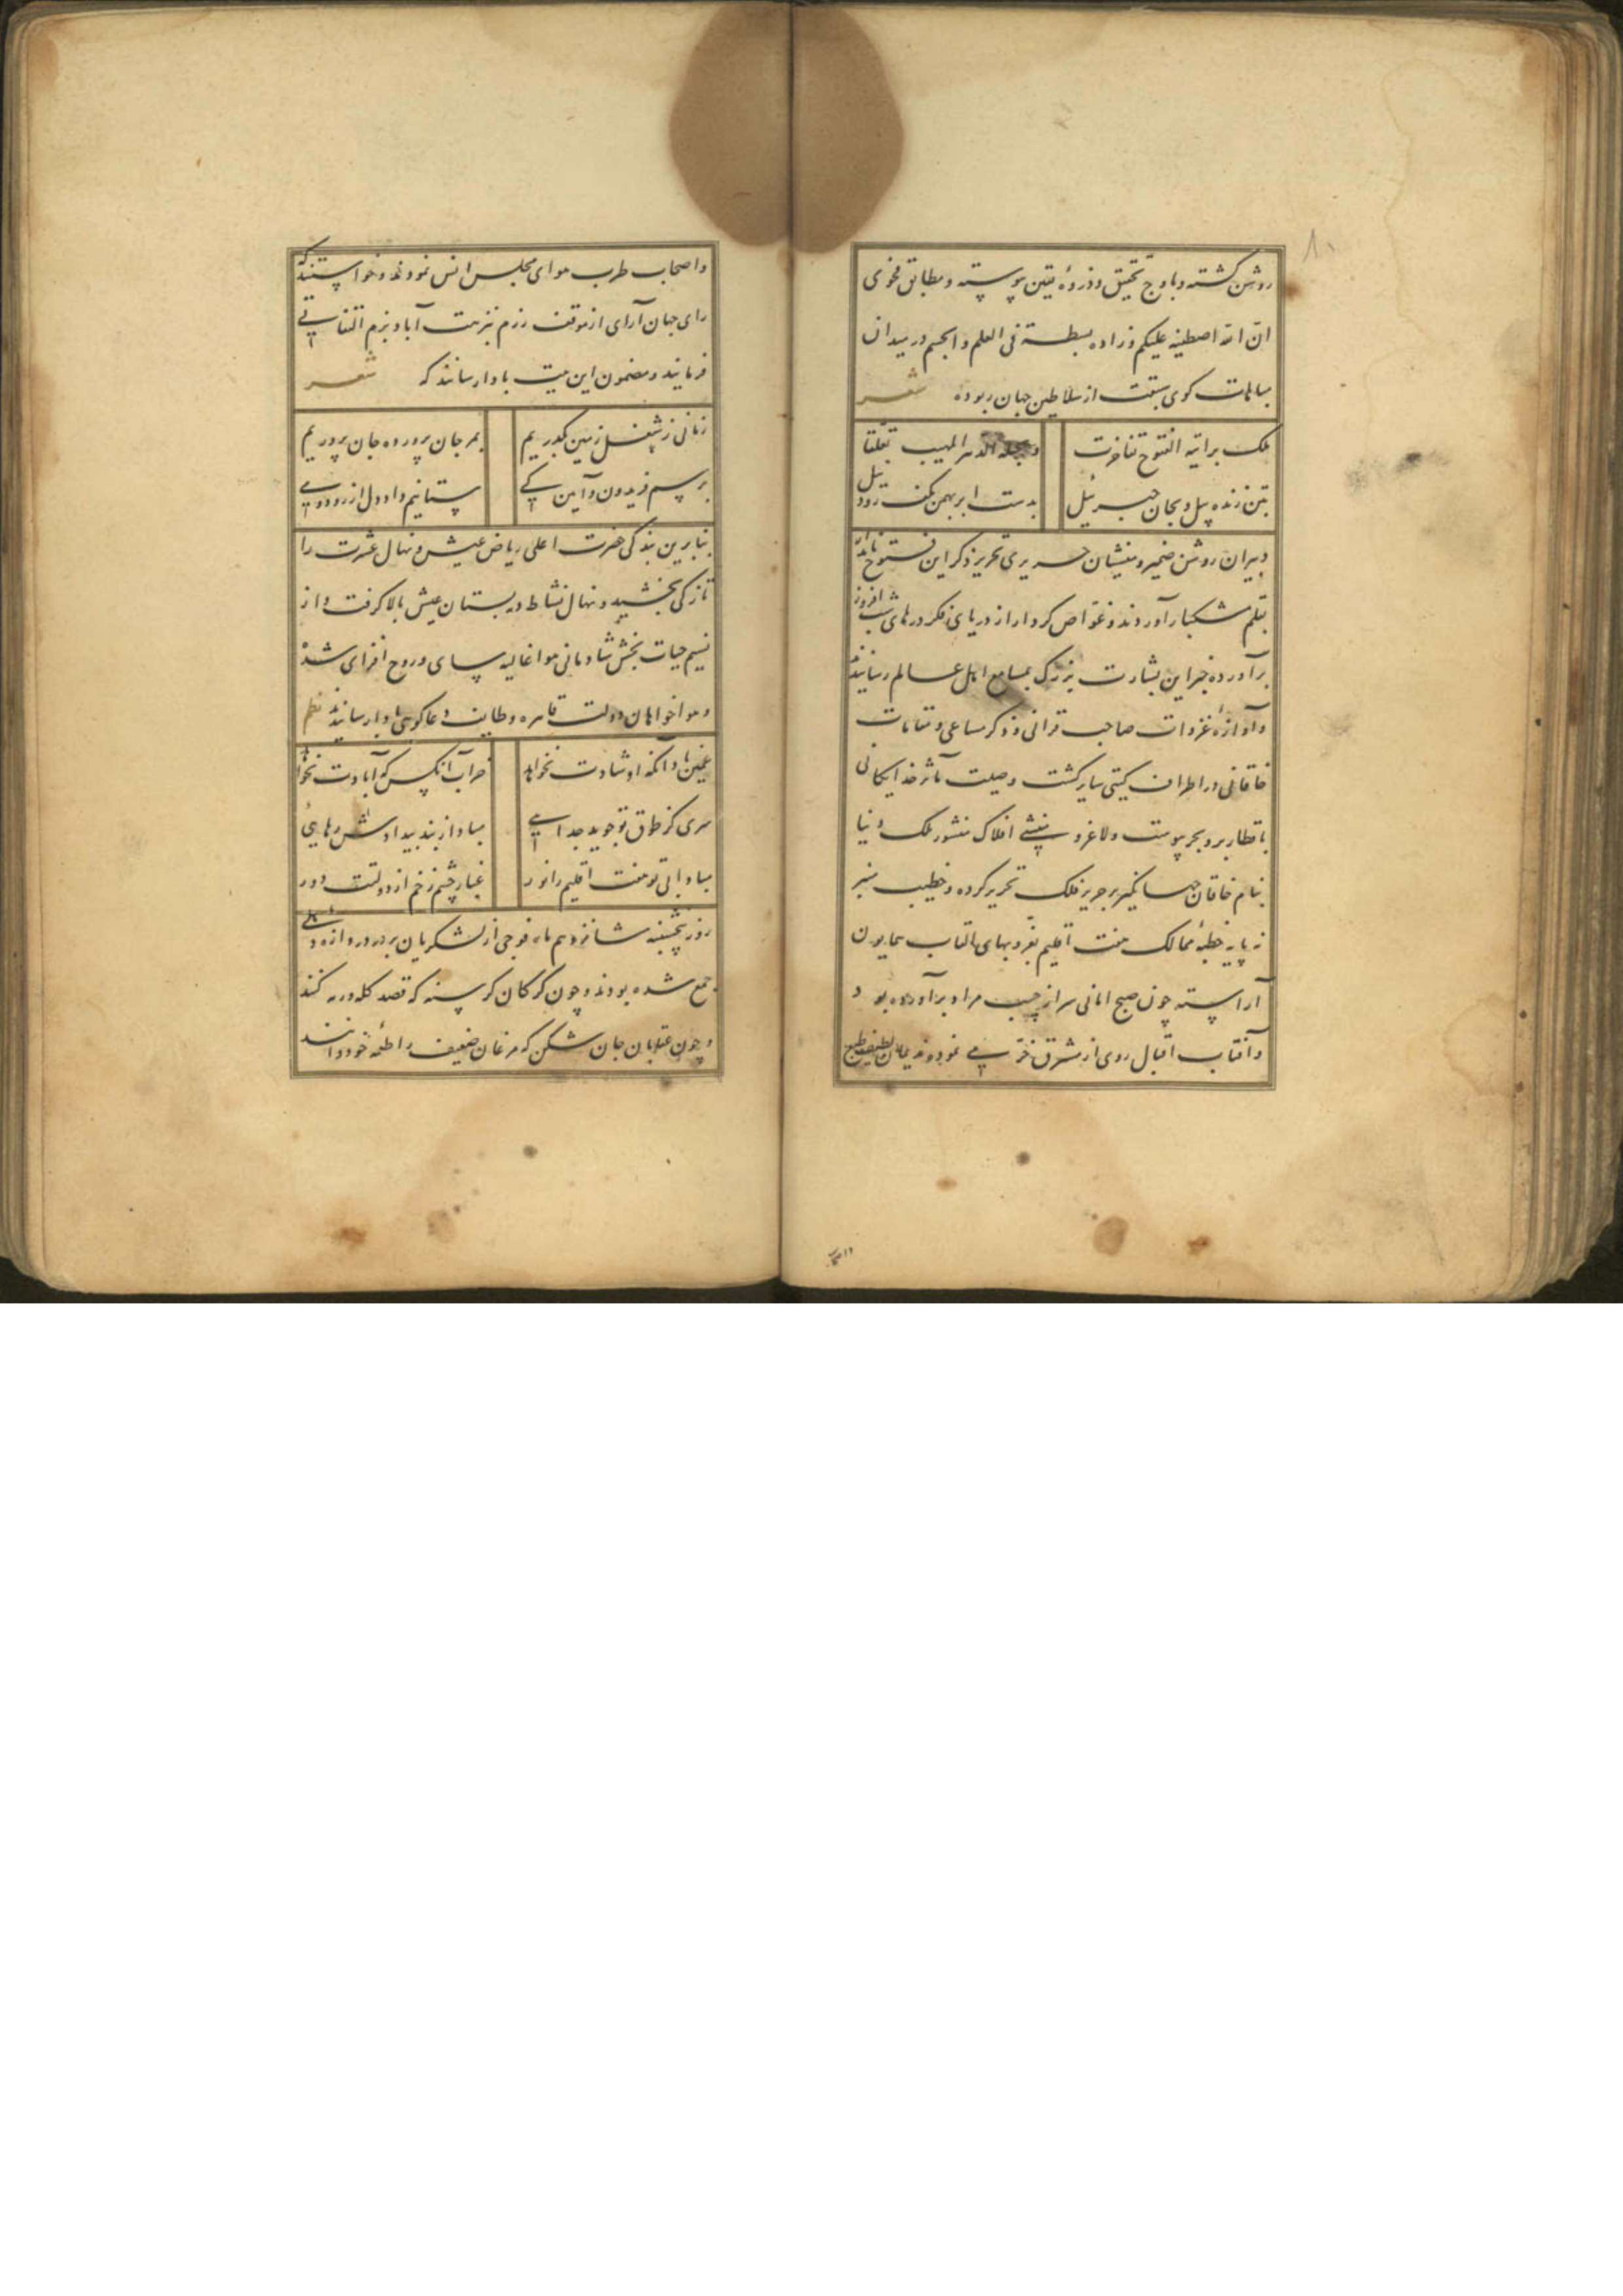 روشن گشته و باوج تحقیق و ذروهٔ یقین پیوسته و مطابق فحوی
ان الله اصطفیه علیکم و زاده بسطة فی العلم و الجسم در میدان
مباهات کوی سبقت از سلاطین جهان ربوده شعر
ملک برایته الفتوح تفاخرت
الدهر المهیب تعلقا
بتن زنده پیل و بجان جبرئیل
بدست ابر بهمن بکف رود نیل
دبیران روشن ضمیر و منشیان حریری تحریر ذکر این فتوح نامدار
بقلم مشکبار آوردند و غواص کردار از دریای فکر درهای شب افروز
برآورده خبر این بشارت بزرک بمسامع اهل عالم رسانیدند
و آوازهٔ غزوات صاحب قرانی و ذکر مساعی و مقامات
خاقانی در اطراف کیتی سایر کشت وصیت مآثر خدایکانی
باقطار بر و بحر پیوست ولاغرو منشی افلاک منشور ملک دنیا
بنام خاقان جهانکیر بر حریر فلک تحریر کرده و خطیب منبر
نه پایه خطبهٔ ممالک هفت اقلیم بفر و بهای القاب همایون
آراسته چون صبح امانی سر از جیب مراد برآورده بود
و آفتاب اقبال روی از مشرق خرمی نمود ندیمان لطیف طبع
و اصحاب طرب هوای مجلس انس نمودند و خواستند که
رای جهان آرای از موقف رزم بنزهت آباد بزم التفاتی
فرمایند و مضمون این بیت بادا رسانند که شعر
زمانی ز شغل زمین بگذریم
بمرجان پرورده جان پروریم
برسم فریدون و آیین کی
ستانیم داد دل از رود و می
بنابرین بندکی حضرت اعلی ریاض عیش و نهال عشرت را
تازکی بخشید و نهال نشاط در بستان عیش بالا کرفت و از
نسیم حیات بخش شادمانی هوا غالیه سای و روح افزای شد
و هواخواهان دولت قاهره وظایف دعاکوی بادا رسانیدند نظم
غمین بادا آنکه او شادت نخواهد
خراب آنکس که آبادت نخواهد
سری کز طوق تو جوید جدایی
مباد از بند بیدادش رهایی
مبادا بی تو هفت اقلیم را نور
غبار چشم زخم از دولتت دور
روز پنجشنبه شانزدهم ماه فوجی از لشکریان بر در دروازه دهلی
جمع شده بودند و چون کرکان کرسنه که قصد کله و رمه کنند
و چون عقابان جان شکن که مرغان ضعیف را طعمه خود دانند